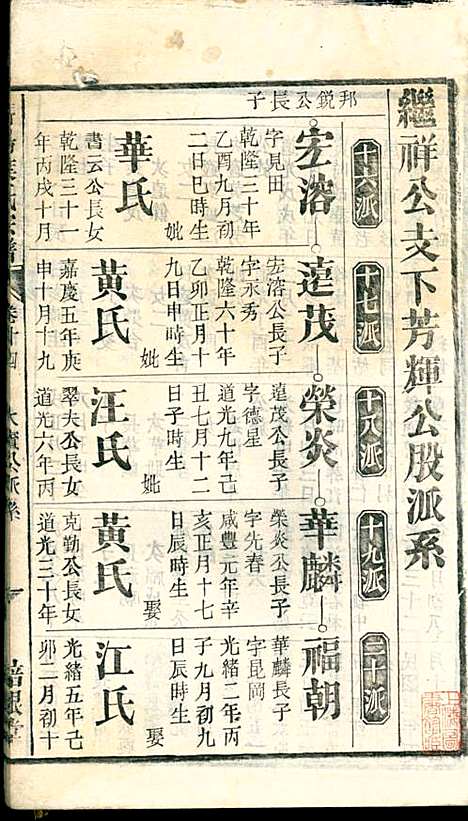 繼祥公支下芳輝公股派系
十六派
十七派
十八派
十九派
二十派
邦銳公長子
宏溶
字見田
乾隆三十年
乙酉九月初
二日巳時生
妣
華氏
書云公長女
乾隆三十一
年丙戌十月
逹茂
宏溶公長子
字永秀
乾隆六十年
乙卯正月十
九日申時生
妣
黄氏
嘉慶五年庚
申十月十九
榮炎
逹茂公長子
字德星
道光九年己
丑七月十二
日子時生
妣
汪氏
翠夫公長女
道光六年丙
華麟
榮炎公長子
字先春
咸豐元年辛
亥正月十七
日辰時生
娶
黄氏
克勤公長女
道光三十年
福朝
華麟長子
字昆岡
光緒二年丙
子九月初九
日辰時生
娶
江氏
光緒五年己
卯二月初十
卷十四
公派系